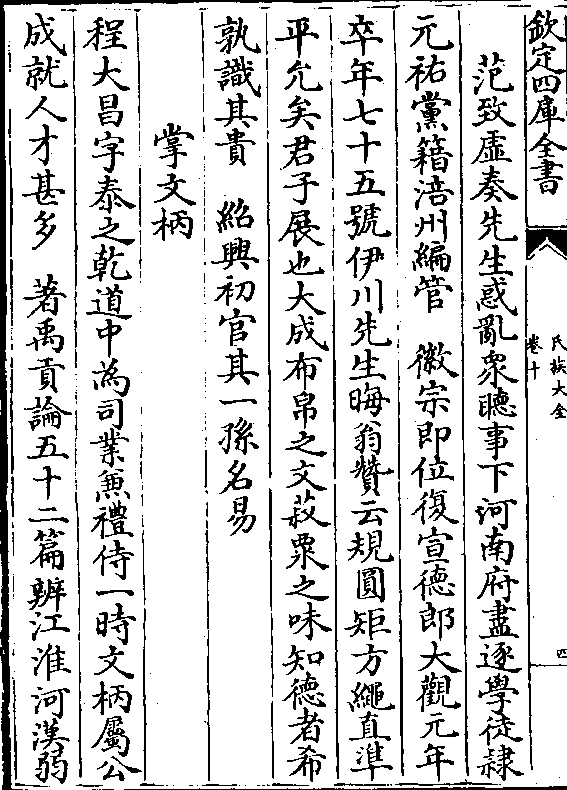 欽定四庫全書
氏族大全
卷十
四
范致虛奏先生惑亂衆聽事下河南府盡逐學徒隷
元祐黨籍涪州編管　徽宗即位復宣德郎大觀元年
卒年七十五號伊川先生晦翁贊云規圓矩方繩直準
平允矣君子展也大成布帛之文菽粟之味知德者希
孰識其貴　紹興初官其一孫名易
掌文柄
程大昌字泰之乾道中為司業兼禮侍一時文柄屬公
成就人才甚多　著禹貢論五十二篇辨江淮河漢弱